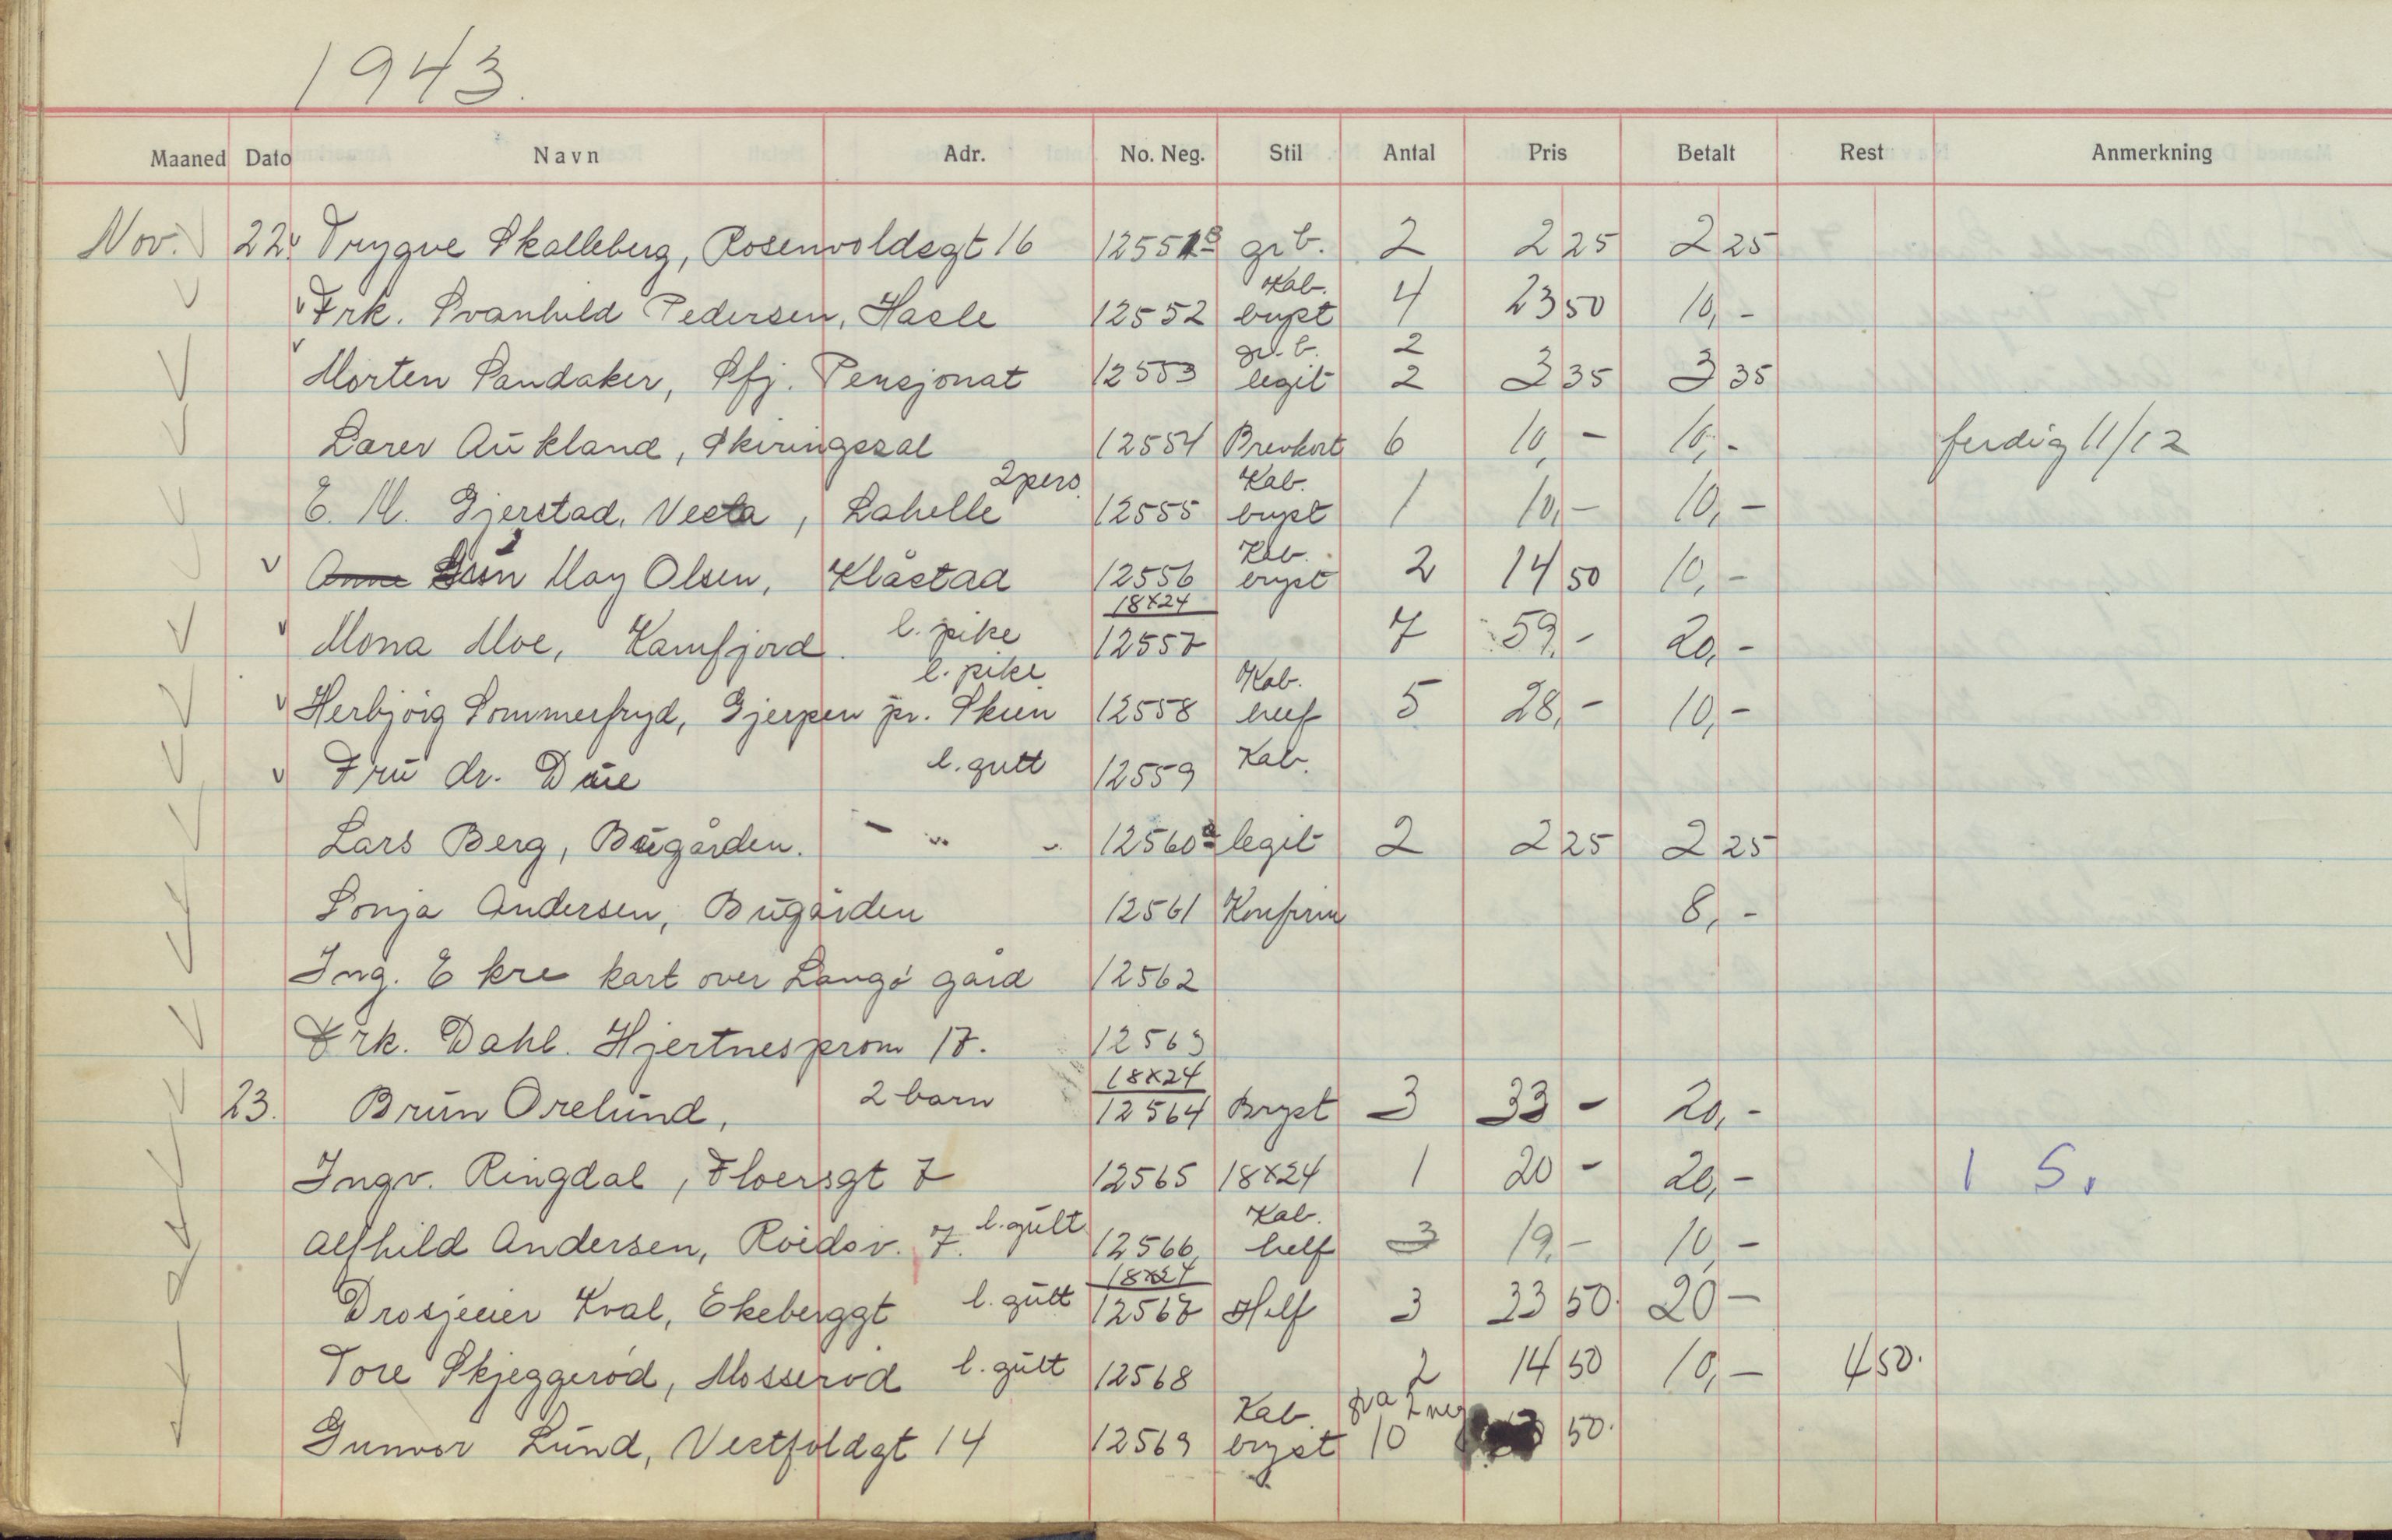 1943.
Maaned Dato Navn Adr. No. Neg. Stil Antal Pris Betalt Rest Anmerkning
Nov. 22. Trygve Skalleberg, Rosenvoldsgt 16 12551 gr b. 2 2 25 2 25
Kab.
Frk. Svanhild Pedersen, Hasle 12552 bryst 4 23 50 10,-
gr. b. 2
Morten Sandaker, Sfj. Pensjonat 12553 legit 2 3 35 3 35
Larer Aukland, Skiringssal 12554 Brevkort 6 10,- 10,- ferdig 11/12
2 pers. Kab.
E. M. Gjerstad, Vesta, Lahelle 12555 bryst 1 10,- 10,-
Kab.
May Olsen, Klåstad 12556 bryst 2 14 50 10,-
18x24
Mona Moe, Kamfjord. l. pike 12557 7 59,- 20,-
l. pike Kab.
Herbjørg Sommerfryd, Gjerpen pr. Skien 12558 helf 5 28,- 10,-
Fru dr. Daie l. gutt 12559 Kab.
Lars Berg, Bugården. - " - 12560a legit 2 2 25 2 25
Sonja Andersen, Bugården 12561 Konfirm 8,-
Ing. Ekre kart over Langø gård 12562
Frk. Dahl. Hjertnesprom 17. 12563
18x24
23. Brun Orelund, 2 barn 12564 Bryst 3 33 - 20,-
Ingv. Ringdal, Floersgt 7 12565 18x24 1 20 - 20,- 1 S.
l. gutt Kab.
Alfhild Andersen, Roidsv. 7. 12566 helf 3 19,- 10,-
18x24
Drosjeeier Kval, Ekeberggt l. gutt 12567 Helf 3 33 50. 20 -
Tore Skjeggerød, Mosserød l. gutt 12568 2 14 50 10,- 4 50.
Kab. fra 2 neg
Gunvor Lund, Vestfoldgt 14 12569 bryst 10 50.